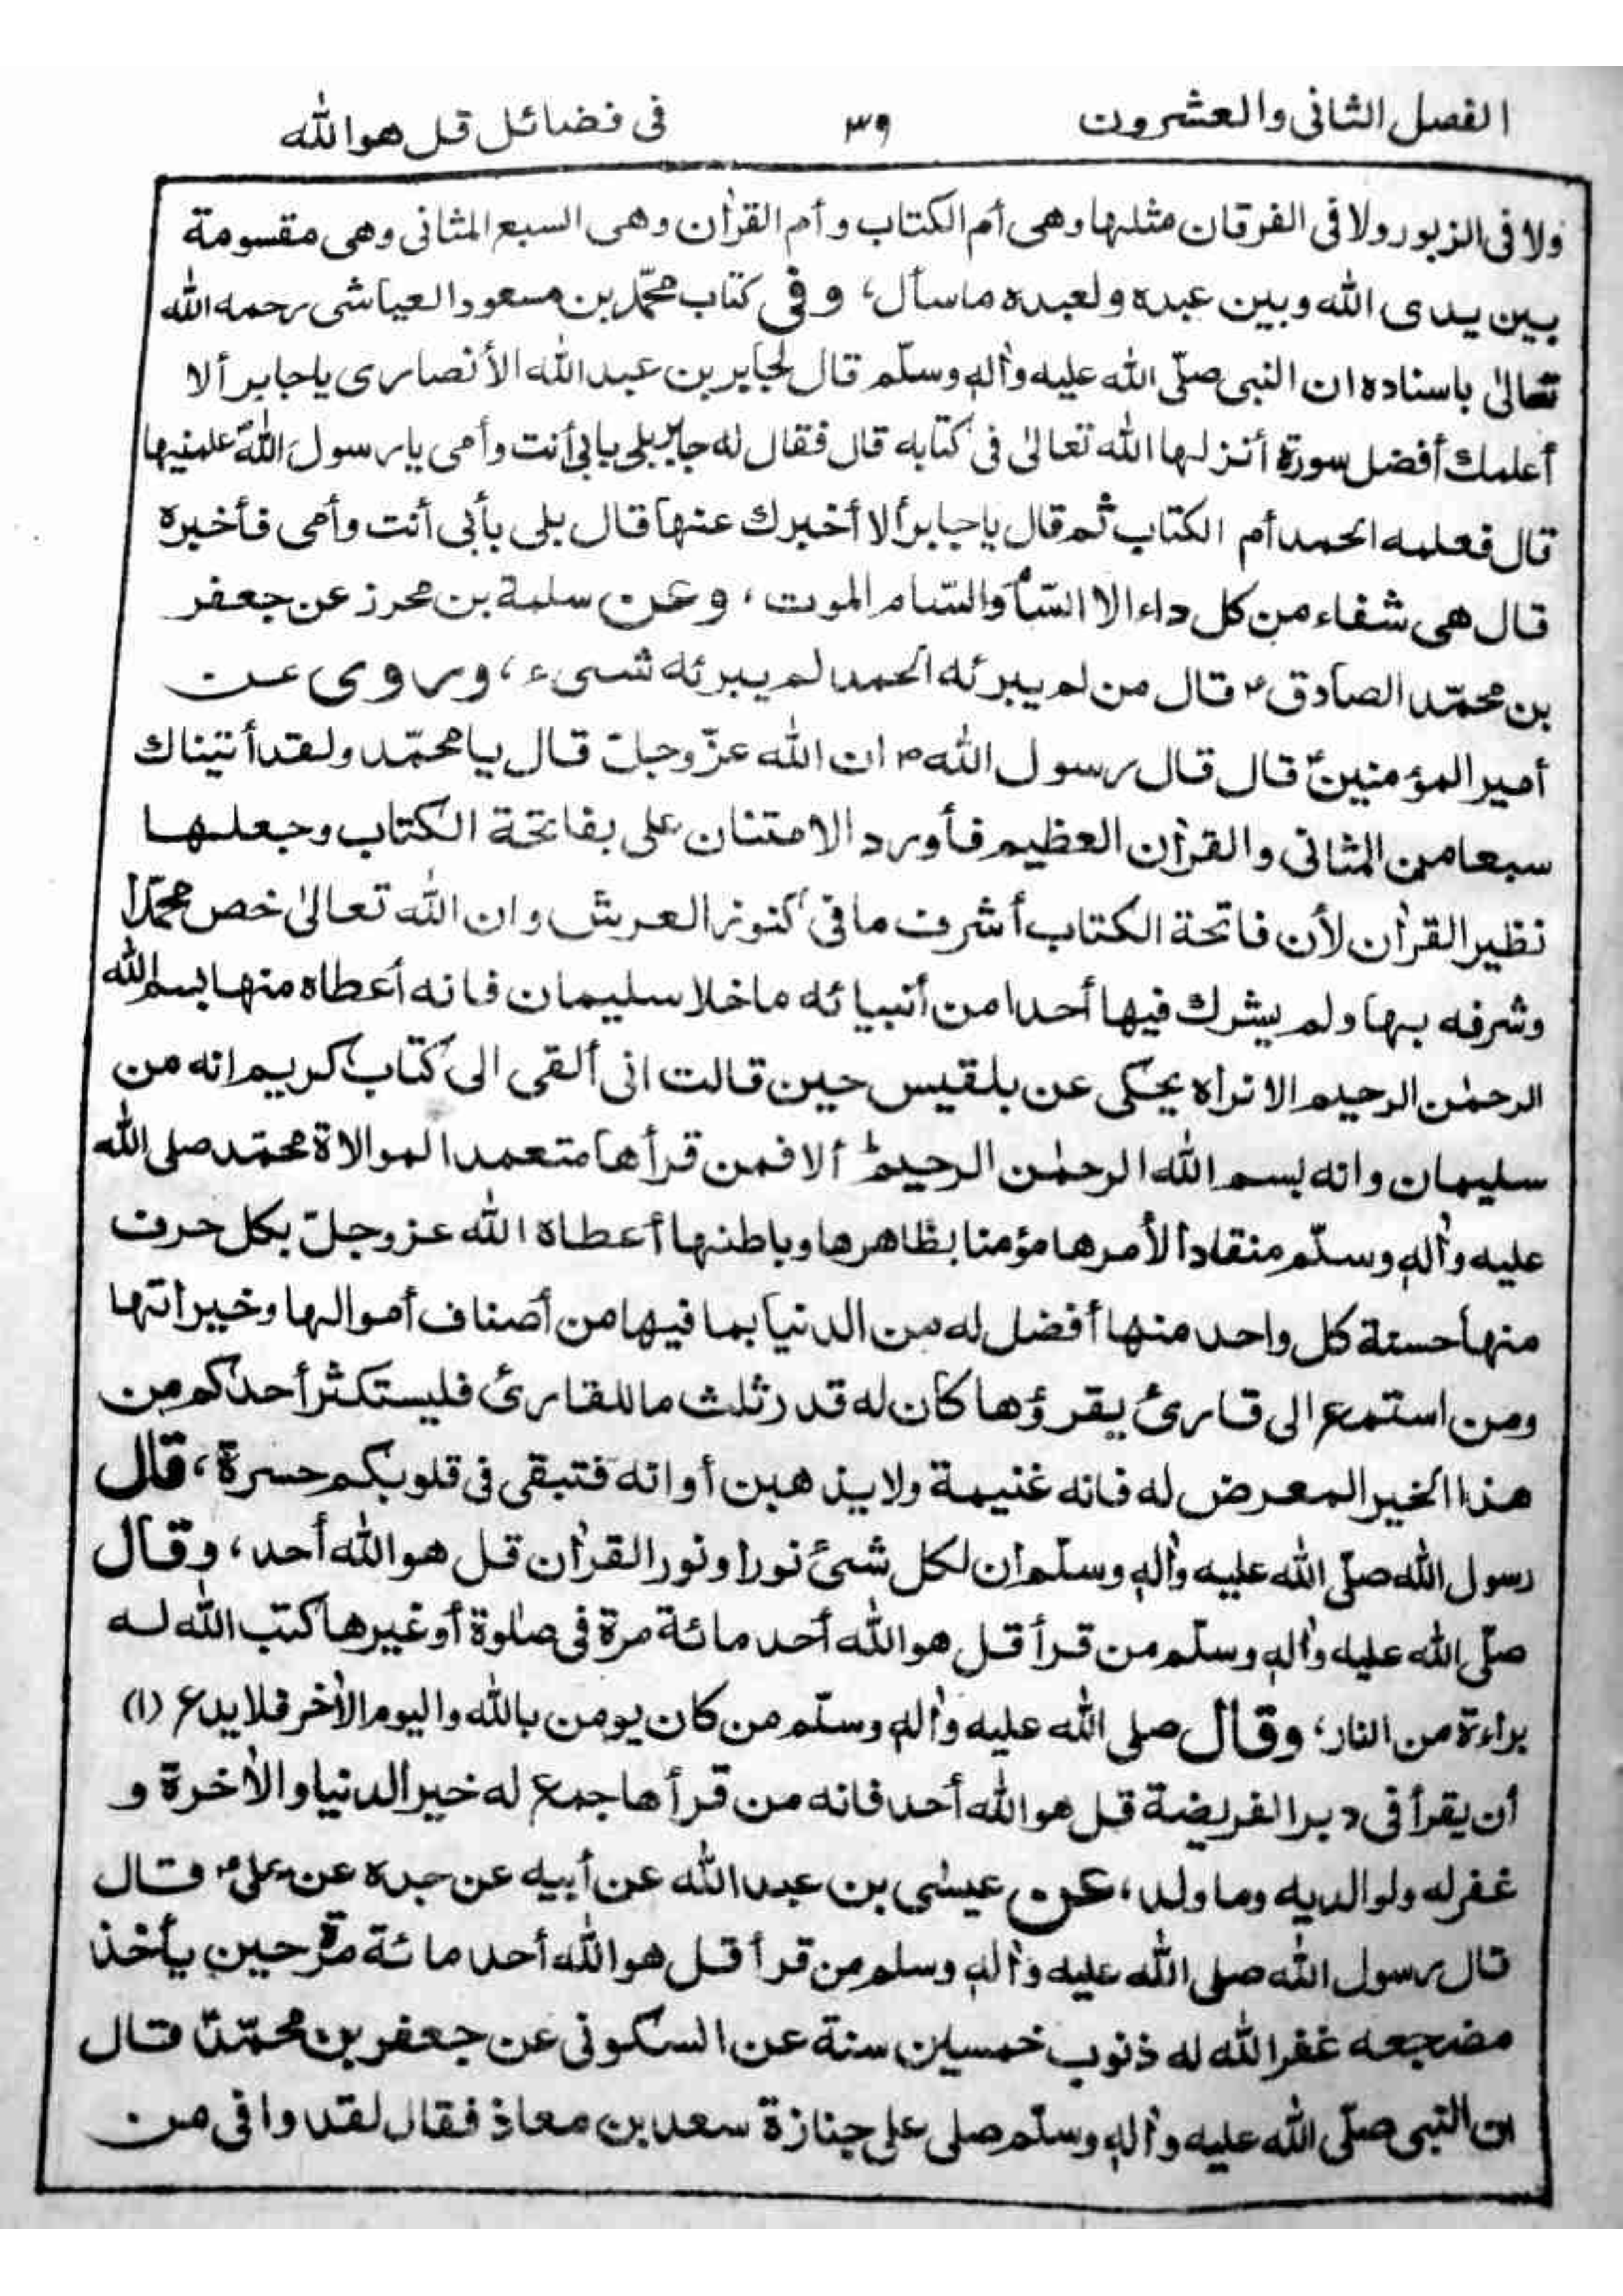 الفصل الثانی والعشرون ۳۹ فی فضائل قل هوالله
ولا فی الزبور ولا فی الفرقان مثلها وهی أم الکتاب و أم القراٰن وهی السبع المثانی وهی مقسومة
بین یدی الله وبین عبده ولعبده ماسأل، وفی کتاب محمّد بن مسعود العیاشی رحمه الله
تعالیٰ باسناده ان النبی صلّی الله علیه واٰله وسلّم قال لجابر بن عبدالله الأنصاری یاجابر ألا
أعلمك أفضل سورة أنزلها الله تعالیٰ فی کتابه قال فقال له جابر بلی بابی أنت وأمی یارسول الله علمنیها
قال فعلمه الحمد أم الکتاب ثم قال یاجابر ألا أخبرك عنها قال بلی بأبی أنت وأمی فأخبره
قال هی شفاء من کل داء الا السّام والسّام الموت، وعن سلمة بن محرز عن جعفر
بن محمّد الصادق ؑ قال من لم یبرئه الحمد لم یبرئه شیء، وروی عن
أمیر المؤمنین ؑ قال قال رسول الله ؐ ان الله عزّ وجلّ قال یا محمّد ولقد أتیناك
سبعا من المثانی والقراٰن العظیم فأورد الامتنان علی بفاتحة الکتاب وجعلها
نظیر القراٰن لأن فاتحة الکتاب أشرف مافی کنوز العرش وان الله تعالیٰ خص محمّداً
وشرفه بها ولم یشرك فیها أحدا من أنبیائه ماخلا سلیمان فانه أعطاه منها بسم الله
الرحمٰن الرحیم الا تراه یحکی عن بلقیس حین قالت انی ألقی الی کتاب کریم انه من
سلیمان وانه بسم الله الرحمٰن الرحیم ألا فمن قرأها متعمدا لموالاة محمّد صلی الله
علیه واٰله وسلّم منقاداً لأمرها مؤمنا بظاهرها وباطنها أعطاه الله عزوجلّ بکل حرف
منها حسنة کل واحد منها أفضل له من الدنیا بما فیها من أصناف أموالها وخیراتها
ومن استمع الی قاریٔ یقرؤها کان له قدر ثلث ما للقاریٔ فلیستکثر أحدکم من
هذا الخیر المعرض له فانه غنیمة ولا یذهبن أوانه فتبقی فی قلوبکم حسرة، قال
رسول الله صلّی الله علیه واٰله وسلّم ان لکل شیٔ نورا ونور القراٰن قل هوالله أحد، وقال
صلّی الله علیه واٰله وسلّم من قرأ قل هوالله أحد مائة مرة فی صلوٰة أو غیرها کتب الله له
براءة من النار، وقال صلی الله علیه واٰله وسلّم من کان یومن بالله والیوم الاٰخر فلا یدع (۱)
أن یقرأ فی دبر الفریضة قل هوالله أحد فانه من قرأها جمع له خیر الدنیا والاٰخرة و
غفر له ولوالدیه وما ولد، عن عیسٰی بن عبدالله عن أبیه عن جده عن علی ؑ قال
قال رسول الله صلی الله علیه واٰله وسلم من قرأ قل هوالله أحد مائة مرّة حین یأخذ
مضجعه غفر الله له ذنوب خمسین سنة عن السکونی عن جعفر بن محمّد ؑ قال
ان النبی صلّی الله علیه واٰله وسلّم صلی علی جنازة سعد بن معاذ فقال لقد وافی من